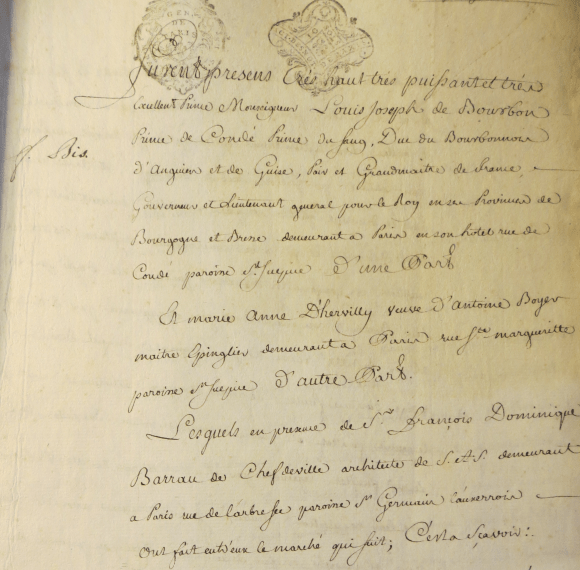 furent presens Très haut très puissant et très
Exellent Prince Monseigneur Louis Joseph de Bourbon
Prince de Condé Prince du sang, Duc du Bourbonnois
f. Bis.
d'Anguien et de Guise, Pair et Grandmaitre de france,
Gouverneur et Lieutenant general pour le Roy en ses Provinces de
Bourgogne et Bresse demeurant a Paris en son hôtel rue de
Condé paroisse St. Sulpice d'une Part
Et marie Anne D'hervilly veuve d'Antoine Boyer
maitre Epinglier demeurant a Paris rue Ste. margueritte
paroisse St Sulpice d'autre Part.
Lesquels en presence de Sr. françois Dominique
Barrau de Chefdeville architecte de S. A. S. demeurant
a Paris rue de l'arbre sec paroisse St Germain l'auxerrois
ont fait entr'eux le marché qui suit; C'est a sçavoir: